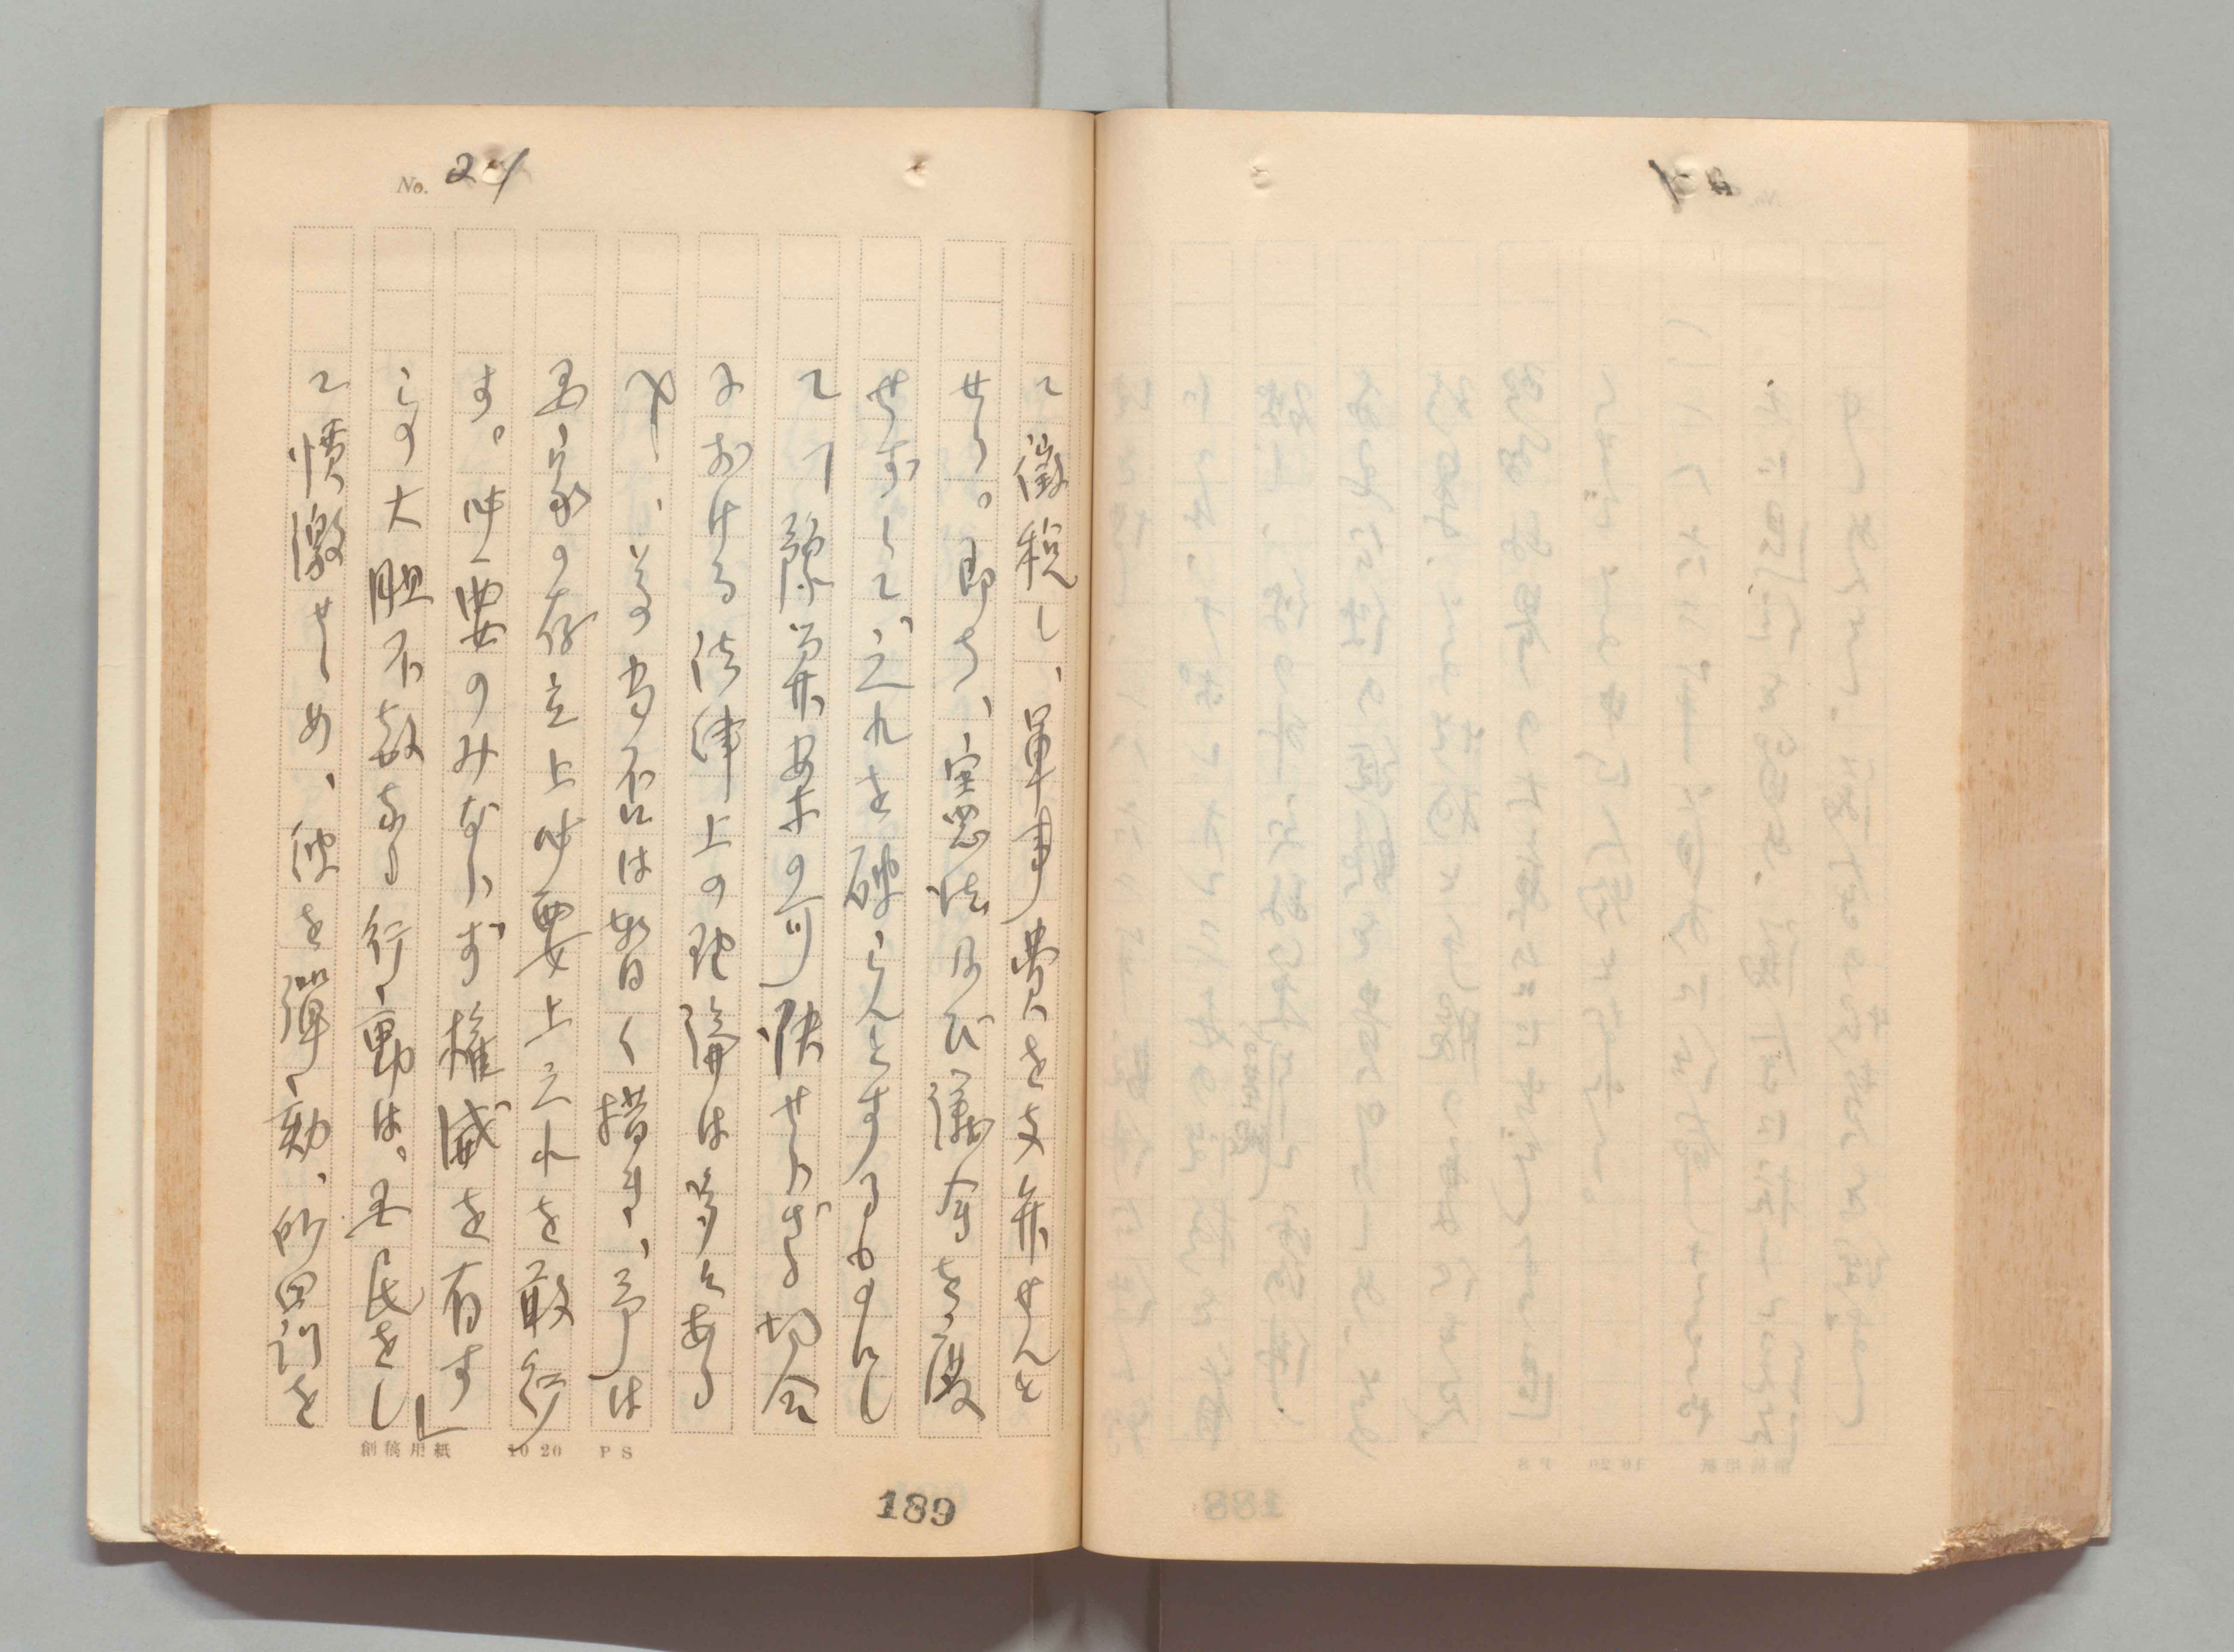 No. 24
て徴税し、軍事費を支弁せんと
せり。即ち、憲法及び議会を廃
せずして、之れを破らんとするものにし
て「予算案の可決せらざる場合
における法律上の理論は多々ある
べし、其の当否は暫く措き、予は
国家の存立上必要上之れを敢行
す。必要のみならず権威を有す」
この大胆不敵なる行動は。国民をし
て憤激せしめ、彼を弾劾、所罰を
創稿用紙 10 20 PS
189